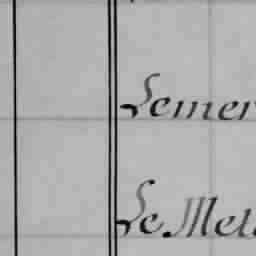 Semer
Le Mel